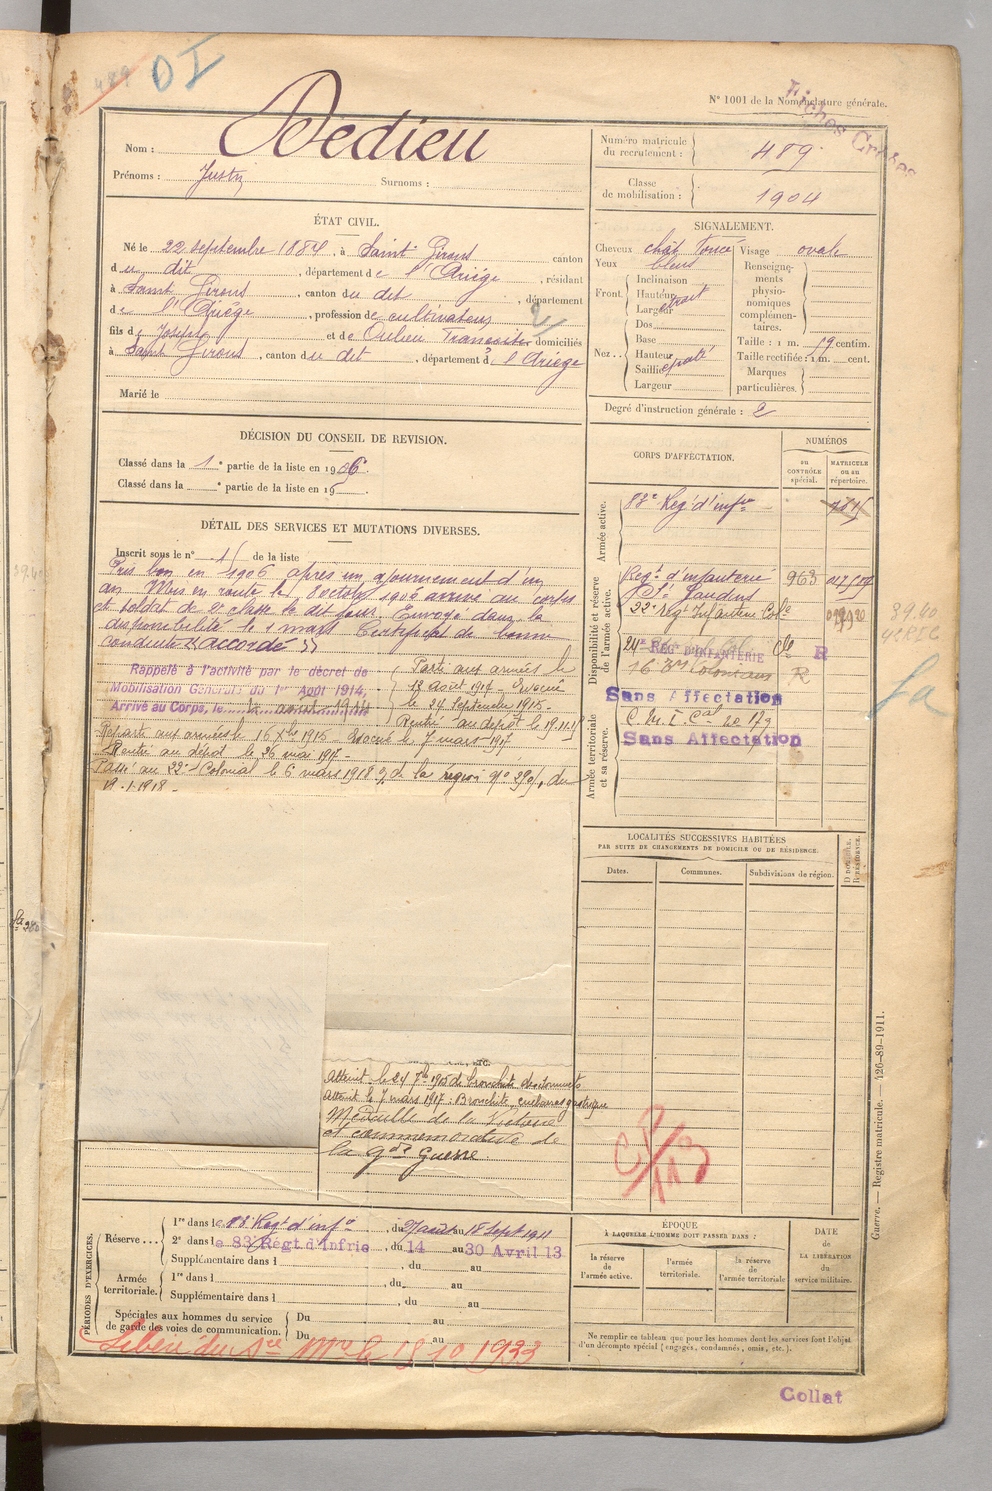 489
DI
N° 1001 de la Nomenclature générale.
Nom : Dedieu
Prénoms : Justin Surnoms :
Numéro matricule du recrutement : 489
Classe de mobilisation : 1904
Fiches Créées
ÉTAT CIVIL.
Né le 22 septembre 1884, à Saint Girons canton
du dit, département de l'Ariège, résidant
à Saint Girons, canton du dit, département
de l'Ariège, profession de cultivateur
fils de Joseph et de domiciliés
à Saint Girons, canton du dit, département d l'Ariège
Marié le
SIGNALEMENT.
Cheveux chât foncé
Yeux bleus
Front. Inclinaison
Hauteur étroit
Largeur
Dos
Nez.. Base
Hauteur
Saillie
Largeur
Visage ovale
Renseignements physionomiques complémentaires.
Taille : 1 m. 59 centim.
Taille rectifiée : 1 m. cent.
Marques particulières.
Degré d'instruction générale : 2
DÉCISION DU CONSEIL DE REVISION.
Classé dans la 1e partie de la liste en 1906.
Classé dans la e partie de la liste en 19
DÉTAIL DES SERVICES ET MUTATIONS DIVERSES.
Inscrit sous le n° 1 de la liste
Pris bon en 1906 après un ajournement d'un
an Mis en route le 8 octob 1906 arrivé au corps
et soldat de 2e classe le dit jour. Envoyé dans la
disponibilité le 1 mars Certificat de bonne
conduite "accordé"
Rappelé à l'activité par le décret de
Mobilisation Générale du 1er Août 1914,
Arrivé au Corps, le 12 août 1914
Parti aux armées le
12 août 1914 Evacué
le 24 Septembre 1915.
Rentré au dépôt le 19.11.15
Reparti aux armées le 16 Xbre 1915 Evacué le 7 mars 1917
Rentré au dépôt le 26 mai 1917.
Passé au 22e Colonial le 6 mars 1918 de la région n° 290, du
19.1.1918.
CORPS D'AFFECTATION.
NUMÉROS
au contrôle spécial.
matricule ou au répertoire.
Armée active.
88e Reg d'infrie
Disponibilité et réserve de l'armée active.
Regt d'infanterie 963
St Gaudens
22e Regt Infanterie Cole
24e REGT D'INFANTERIE Cle R
16 Bon Coloniaux R
Sans Affectation
C. M. I. Cal 20 173
Sans Affectation
Armée territoriale et sa réserve.
LOCALITÉS SUCCESSIVES HABITÉES
PAR SUITE DE CHANGEMENTS DE DOMICILE OU DE RÉSIDENCE.
Dates. Communes. Subdivisions de région. D. domicile. R. résidence.
Atteint le 24 7bre 1915 de bronchite des sommets
Atteint le 7 mars 1917 : Bronchite, embarras gastrique
Médaille de la Victoire
et commémorative de
la gde Guerre.
CP/113
PÉRIODES D'EXERCICES.
Réserve... 1re dans le 88 Regt d'infie, du août au 18 Sept 1911
2e dans le 83 Régt d'Infrie, du 14 au 30 Avril 13
Supplémentaire dans l , du au
Armée territoriale. 1re dans l , du au
Supplémentaire dans l , du au
Spéciales aux hommes du service de garde des voies de communication. Du au
Du au
Libéré du Sce Mre le 15 10 1933
ÉPOQUE
À LAQUELLE L'HOMME DOIT PASSER DANS :
la réserve de l'armée active.
l'armée territoriale.
la réserve de l'armée territoriale
DATE de LA LIBÉRATION du service militaire.
Ne remplir ce tableau que pour les hommes dont les services font l'objet
d'un décompte spécial (engagés, condamnés, omis, etc.).
Guerre. — Registre matricule. — 126-89-1911.
Collat